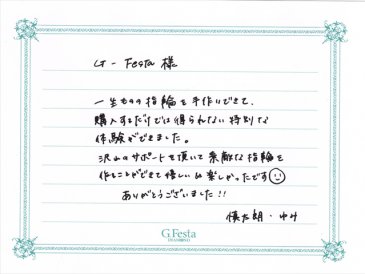 G-Festa 様
一生ものの指輪を手作りできて、
購入するだけでは得られない特別な
体験ができました。
沢山のサポートを頂いて素敵な指輪を
作ることができて嬉しい&楽しかったです
ありがとうございました!!
慎太朗・ゆみ
G.Festa
DIAMOND